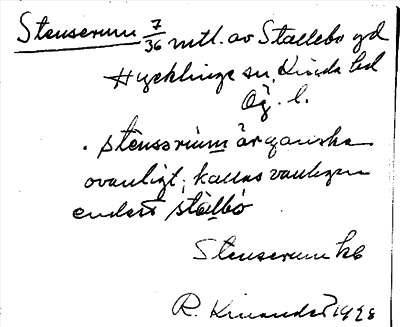 Stenserum 7/36 mtl. av Stallebo gd
Hycklinge sn, Kinda hd
Ög. l.
. sténsarium är ganska
ovanligt; kallas vanligen
endast stálbo
Stenserum kb
R. Kinander 1928